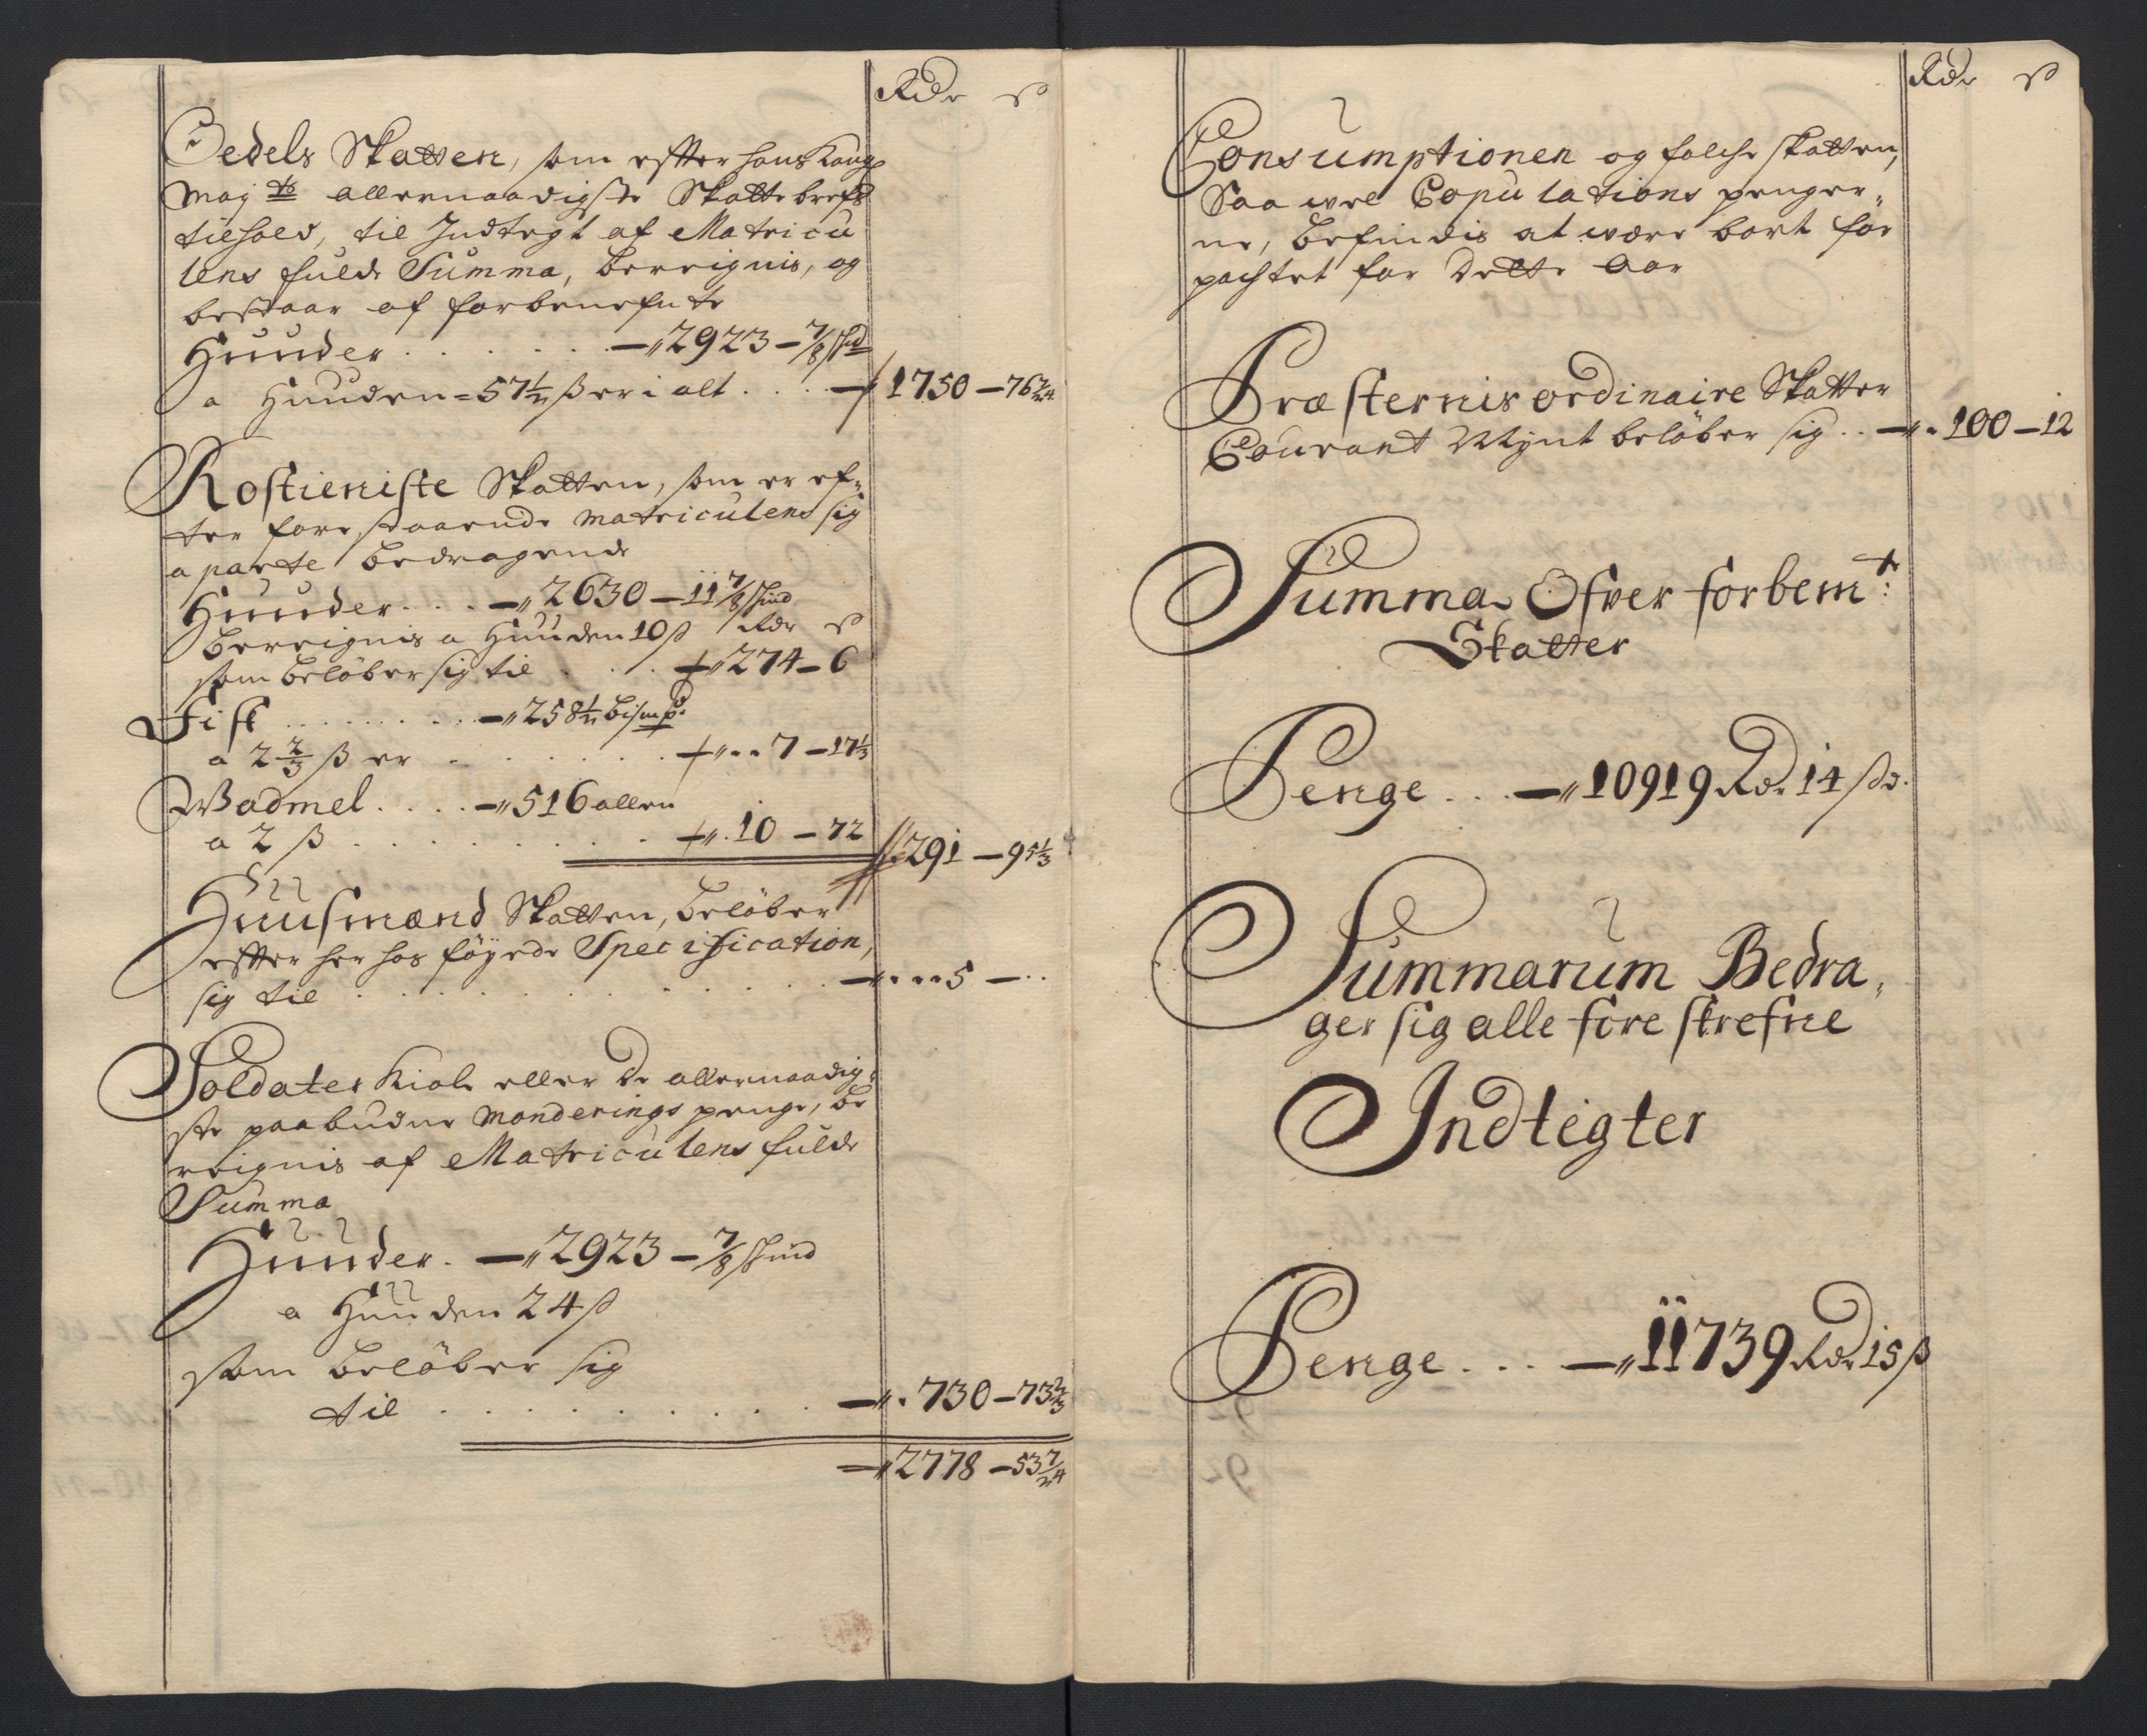 Rdr ß
Oedels Skatten, som effter hans Kong
Maj ts allernaadigste Skatte brefs
tilhold, til Indtegt af Matricu
lens fulde Summa, bereignis, og
bestaar af forbenefnte
Huuder . . . . . . 2923 - 7/8 skind
a Huuden = 57 1/2 ß er i alt . . . . 1750 - 76 7/24
Rostieniste Skatten, som er ef-
ter forestaaende Matriculens sig
a parte bedragende
Huuder . . . 2630 - 11 7/8 skind
bereignis a Huuden 10 ß Rdr ß
som beløber sig til . . . . 274 - 6
Fisk . . . . . . . 258 1/2 bismp:
a 2 2/3 ß er . . . . . . . 7 - 17 1/3
Wadmel . . . . 516 allen
a 2 ß . . . . . . . . . . 10 - 72
291 - 95 1/3
Huusmænd Skatten, beløber
effter her hos føyede Specification,
sig til . . . . . . . . . . . . 5 - . .
Soldater Kiole eller de allernaadig-
ste paabudne Monderings penge, be
reignis af Matriculens fulde
Summa
Huuder . 2923 - 7/8 skind
a Huuden 24 ß
som beløber sig
til . . . . . . . . . 730 - 73 2/3
2778 - 53 7/24
Rdr ß
Consumptionen og folche skatten,
Saa wel Copulations penger-
ne, befindis at være bort for
pachtet for dette Aar
Præsternis ordinaire Skatter
Courant Mynt beløber sig . . 100 - 12
Summa Ofver forbemt:
Skatter
Penge . . . 10919 Rdr 14 ßd.
Summarum Bedra-
ger sig alle fore skrefne
Indtegter
Penge . . . 11739 Rdr 15 ß